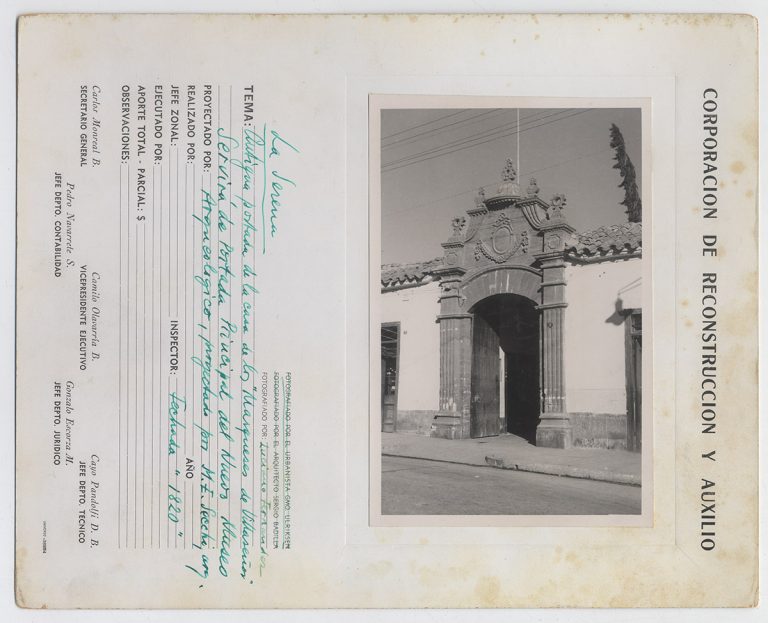 CORPORACION DE RECONSTRUCCION Y AUXILIO
FOTOGRAFIADO POR EL URBANISTA GMO. ULRIKSEN
FOTOGRAFIADO POR EL ARQUITECTO SERGIO BADILLA
FOTOGRAFIADO POR:
La Serena
TEMA: Antigua portada de la casa de los "Marqueses de Villaseñor"
Servirá de Portada Principal del Nuevo Museo
PROYECTADO POR: Arqueologico, proyectado por H.E. Secchi, arq.
REALIZADO POR: AÑO
JEFE ZONAL: INSPECTOR: Fechada "1820"
EJECUTADO POR:
APORTE TOTAL - PARCIAL: $
OBSERVACIONES:
Carlos Monreal B.
SECRETARIO GENERAL
Pedro Navarrete S.
JEFE DEPTO. CONTABILIDAD
Camilo Olavarría B.
VICEPRESIDENTE EJECUTIVO
Gonzalo Escorza M.
JEFE DEPTO. JURIDICO
Cayo Pandolfi D. B.
JEFE DEPTO. TECNICO